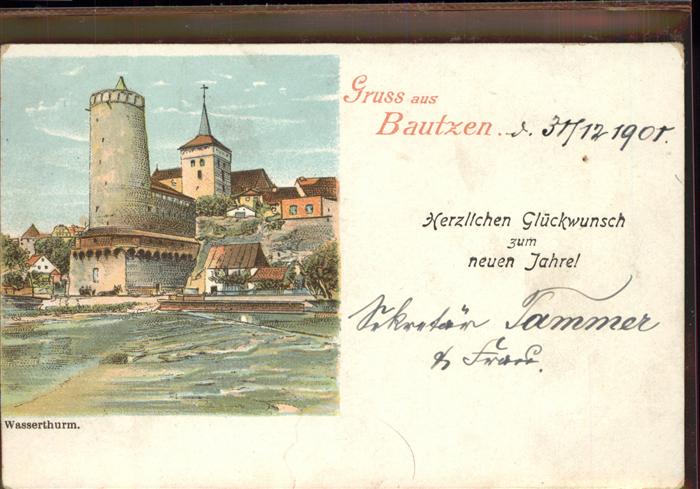 Gruss aus
Bautzen d. 31/12 1901.
Herzlichen Glückwunsch
zum
neuen Jahre!
Sekretär Tammer
& Frau.
Wasserthurm.